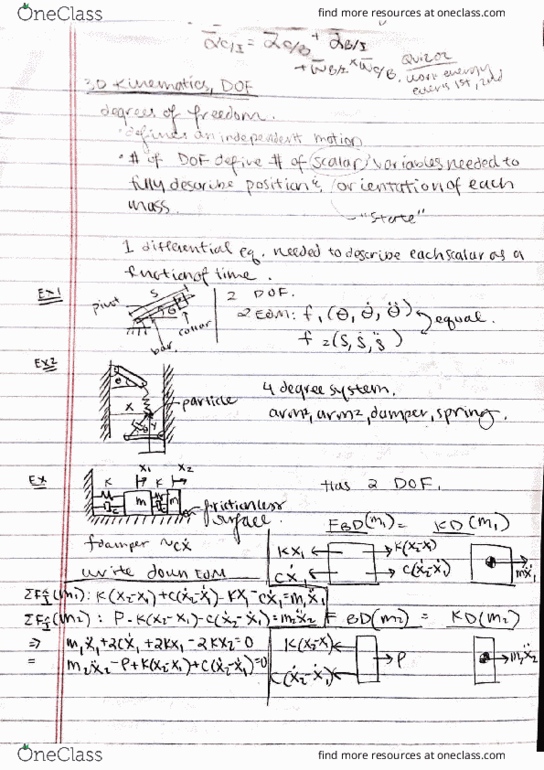 OneClass
find more resources at oneclass.com
ᾱC/I = ᾱC/B + ᾱB/I
+ ω̄B/I × ω̄C/B
Quiz 02
work energy
3D Kinematics, DOF
degrees of freedom.
· defines an independent motion
· # of DOF define # of scalar variables needed to
fully describe position & orientation of each
mass.
"state"
1 differential eq. needed to describe each scalar as a
function of time.
Ex1
pivot
S
θ
collar
bar
2 DOF.
2 EOM: f₁(θ, θ̇, θ̈)
equal.
f₂(S, Ṡ, S̈)
Ex2
θ
X
particle
4 degree system.
damper, spring.
Ex
K
X₁
K
X₂
m
m
frictionless
surface.
fdamper ~cẋ
Has 2 DOF.
FBD(m₁) = KD(m₁)
KX₁
K(X₂-X₁)
CẊ₁
C(Ẋ₂-Ẋ₁)
mẍ₁
write down EOM
ΣFî(m₁): K(X₂-X₁)+C(Ẋ₂-Ẋ₁)-KX₁-CẊ₁=m₁Ẍ₁
ΣFî(m₂): P-K(X₂-X₁)-C(Ẋ₂-Ẋ₁)=m₂Ẍ₂
FBD(m₂) = KD(m₂)
⇒ m₁Ẍ₁+2CẊ₁+2KX₁-2KX₂=0
= m₂Ẍ₂-P+K(X₂-X₁)+C(Ẋ₂-Ẋ₁)=0
K(X₂-X₁)
P
C(Ẋ₂-Ẋ₁)
m₂Ẍ₂
OneClass
find more resources at oneclass.com